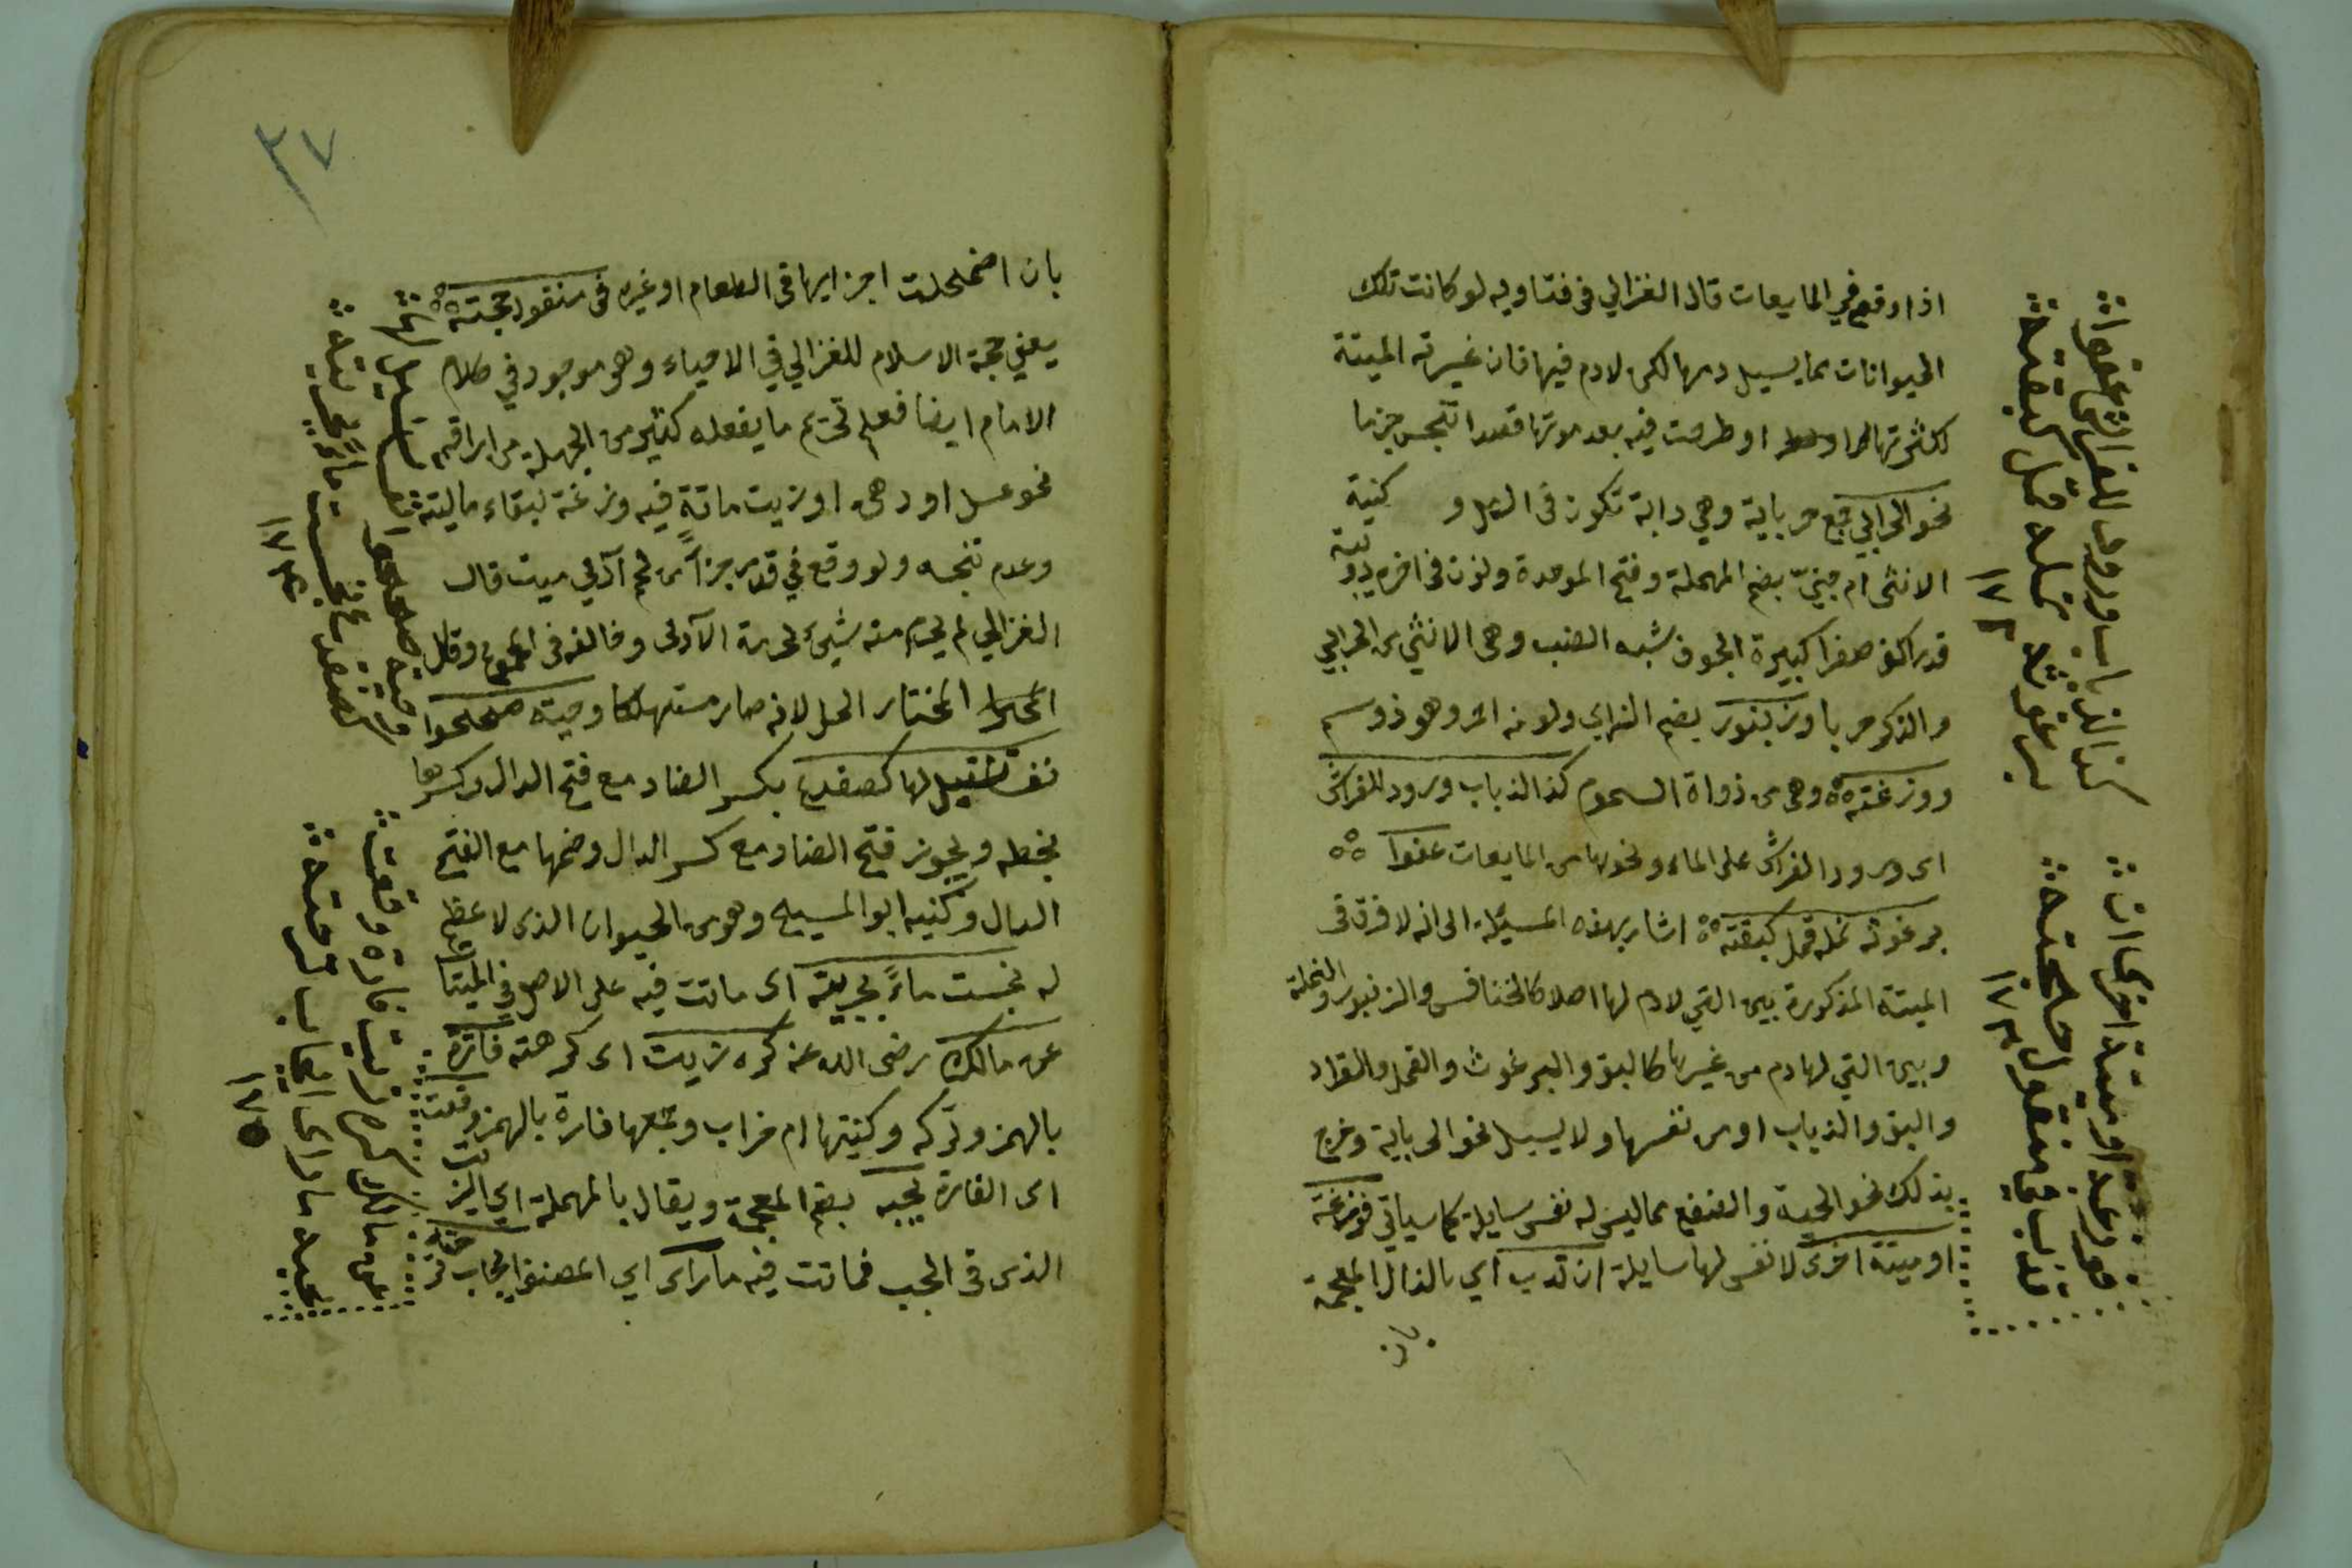 اذا وقع في المايعات قال الغزالي في فتاويه لو كانت تلك
الحيوانات مما يسيل دمها لكن لا دم فيها فان غيرته الميتة
لكثرتها او طرحت فيه بعد موتها قصدا تنجس جزما
نحو الحرابي جمع حرباية وهي دابة تكون في و كنية
الانثى ام حبين بضم المهملة وفتح الموحدة ونون في اخره دويبة
قدر الكف صفرا كبيرة الجوف شبه الضب وهي الانثى من الحرابي
والذكر حربا وزنبور بضم الزاي ولونه احمر وهو ذو سم
ووزغته وهي من ذواة السموم كذا الذباب ورود الفراش
اي ورود الفراش على الماء ونحوها من المايعات عفوا
برغوثه نمله قمل كبقته اشار بهذه المسيلة الى انه لا فرق في
الميتة المذكورة بين التي لا دم لها اصلا كالخنافس والزنبور والنملة
وبين التي لها دم من غيرها كالبق والبرغوث والقمل والقراد
والبق والذباب او من نفسها ولا يسيل نحو الحرباية وخرج
بذلك نحو الحية والضفدع مما ليس له نفس سايلة كما سياتي فوزغة
او ميتة اخرى لا نفس لها سايلة ان تذب اي بالذال المعجمة
كذا الذباب ورود للفراش عفوا
برغوثه نمله قمل كبقته
١٧٢
فوزغة او ميتة اخرى ان
تذب في منقول حجته
١٧٣
٣٧
بان اضمحلت اجزايها في الطعام او غيره في منقول حجته
يعني حجة الاسلام للغزالي في الاحياء وهو موجود في كلام
الامام ايضا فعلم تحريم ما يفعله كثير من الجهلة من اراقة
نحو عسل او دهن او زيت ماتة فيه وزغة لبقاء ماليته
وعدم تنجسه ولو وقع في قدر جزأ من لحم آدمي ميت قال
الغزالي لم يحرم منه شيئ لحرمة الآدمي وخالفه في المجموع وقال
المختار الحل لانه صار مستهلكا وحيته صححوا
نفسا تسيل لها كضفدع بكسر الضاد مع فتح الدال وكسرها
بخطه ويجوز فتح الضاد مع كسر الدال وضمها مع الفتح
الدال وكنيه ابو المسيح وهو من الحيوان الذي لا عظم
له نجست ماءً بجريته اي ماتت فيه على الاصل في الميتات
عن مالك رضي الله عنه كره زيت اي كرهته فارة
بالهمز وتركه وكنيتها ام خراب وجمعها فارة بالهمز وقعت
اى الفارة بجبه بضم المعجمة ويقال بالمهملة اي الزيت
الذي في الجب فماتت فيه ما رأى اي المصنف ايجاب حرمته
وحيته صححوا نفسا تسيل لها
كضفدع نجست ماءً بجريته
١٧٤
عن مالك كره زيت فارة وقعت
بجبه ما راى ايجاب حرمته
١٧٥